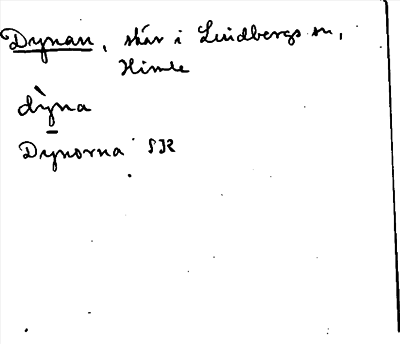 Dynan, skär i Lindbergs sn,
Himle
dỳna
Dynorna SJK